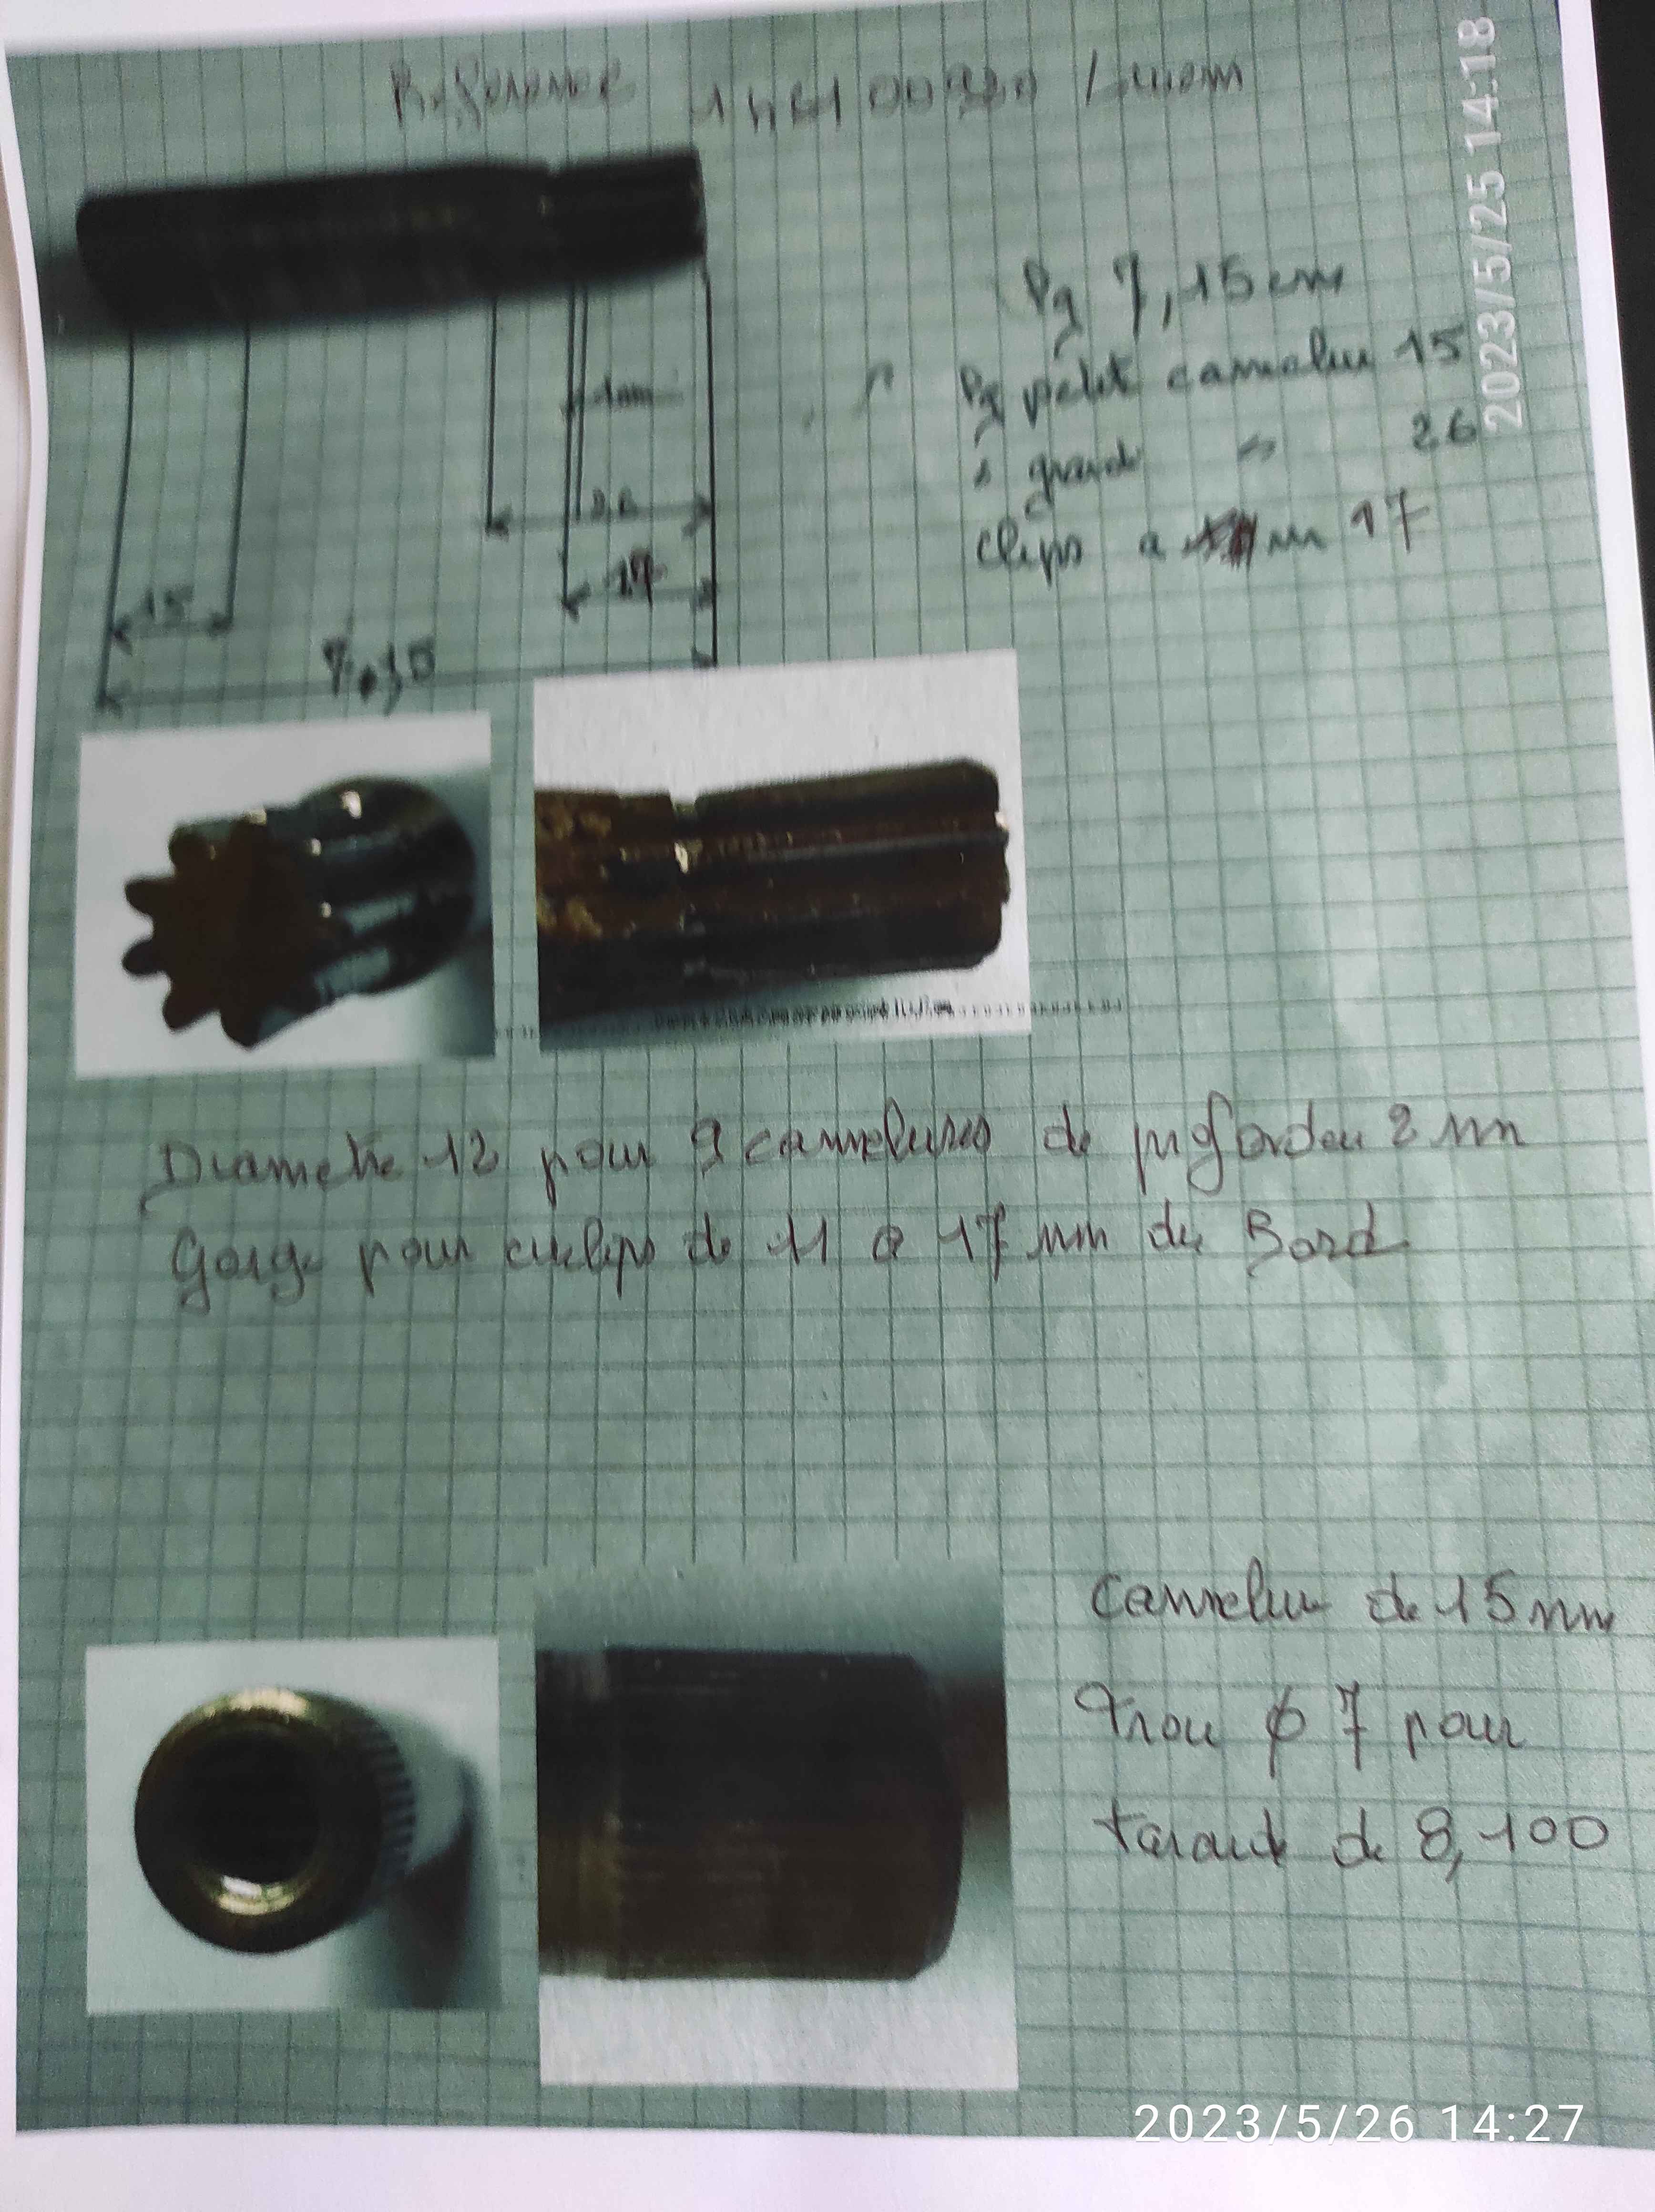 Reference
2023/5/25 14:18
Lg 7,15 cm
Lg petit cannelure 15
grande " 26
clips a 17
1mm
26
17
15
7,15
Diametre 12 pour 9 cannelures de profondeu 2 mm
Gorge pour circlips de 11 a 17 mm du Bord
Cannelure de 15 mm
Trou φ 7 pour
taraude de 8,100
2023/5/26 14:27